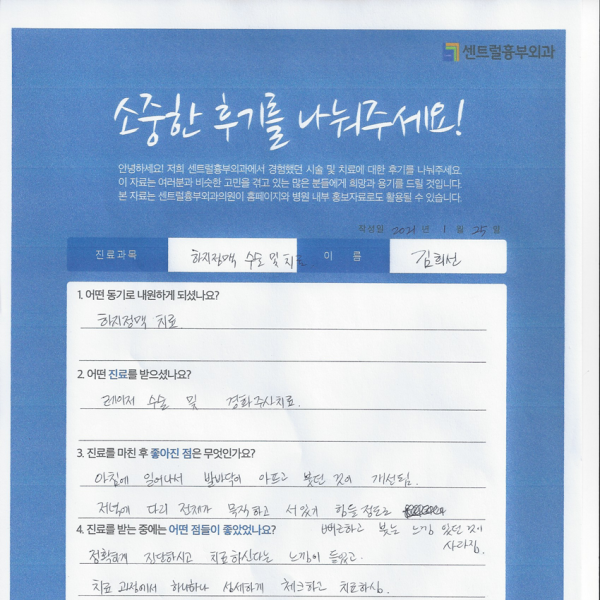 센트럴흉부외과
소중한 후기를 나눠주세요!
안녕하세요! 저희 센트럴흉부외과에서 경험했던 시술 및 치료에 대한 후기를 나눠주세요.
이 자료는 여러분과 비슷한 고민을 겪고 있는 많은 분들에게 희망과 용기를 드릴 것입니다.
본 자료는 센트럴흉부외과의원이 홈페이지와 병원 내부 홍보자료로도 활용될 수 있습니다.
작성일 2021 년 1 월 25 일
진료과목 하지정맥 수술 및 치료 이 름 김희선
1. 어떤 동기로 내원하게 되셨나요?
하지정맥 치료.
2. 어떤 진료를 받으셨나요?
레이저 수술 및 경화주사치료.
3. 진료를 마친 후 좋아진 점은 무엇인가요?
아침에 일어나서 발바닥이 아프고 붓던 것이 개선됨.
저녁에 다리 전체가 묵직하고 서있기 힘들 정도로
뻐근하고 붓는 느낌 있던 게
사라짐.
4. 진료를 받는 중에는 어떤 점들이 좋았었나요?
정확하게 진단하시고 치료하신다는 느낌이 들었고.
치료 과정에서 하나하나 상세하게 체크하고 치료하심.